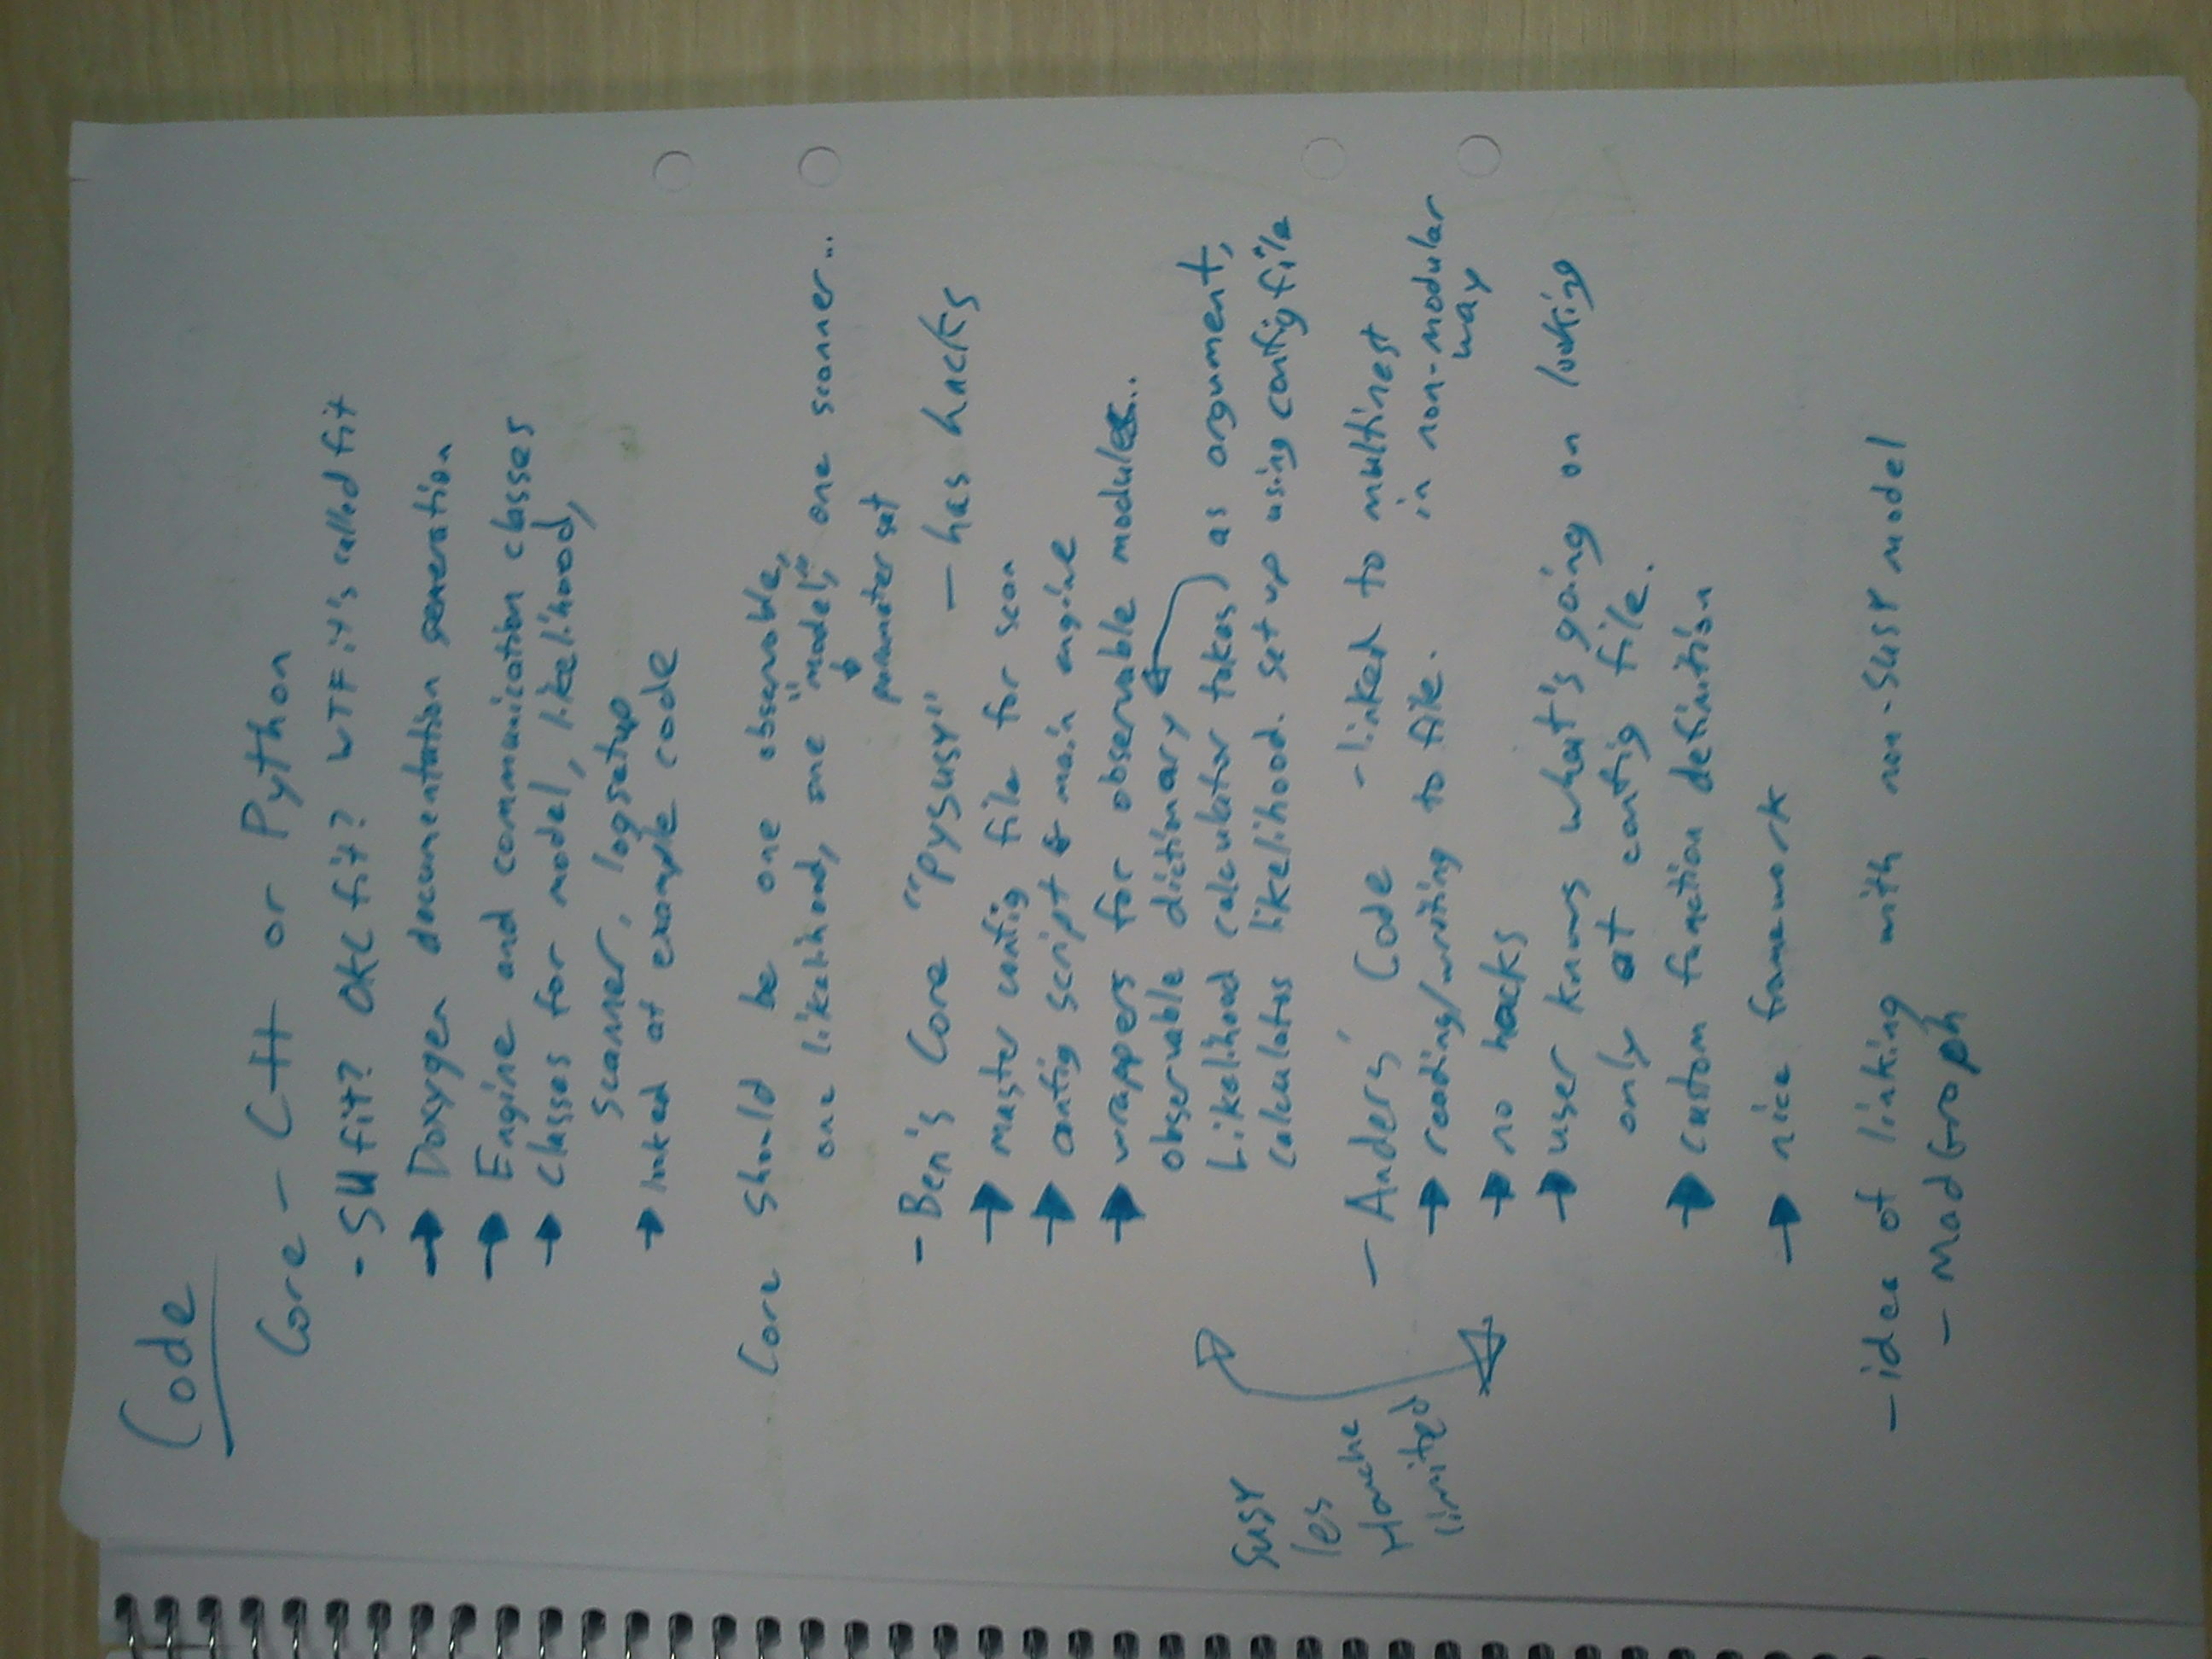 Code
Core - C++ or Python
- SUfit? OKCfit? WTF it's called fit
→ Doxygen documentation generation
→ Engine and communication classes
→ classes for model, likelihood,
scanner, logsetup
→ looked at example code
Core should be one observable,
one likelihood, one "model," one scanner...
↓
parameter set
- Ben's Core "PYSUSY" - has hacks
→ master config file for scan
→ config script & main engine
→ wrappers for observable modules...
observable dictionary
Likelihood calculator takes as argument,
calculates likelihood. set up using config file
SUSY
les
Houche
limited
- Anders' Code - linked to multinest
in non-modular
way
→ reading/writing to file.
→ no hacks
→ user knows what's going on looking
only at config file.
→ custom function definition
→ nice framework
- idea of linking with non-SUSY model
- MadGraph